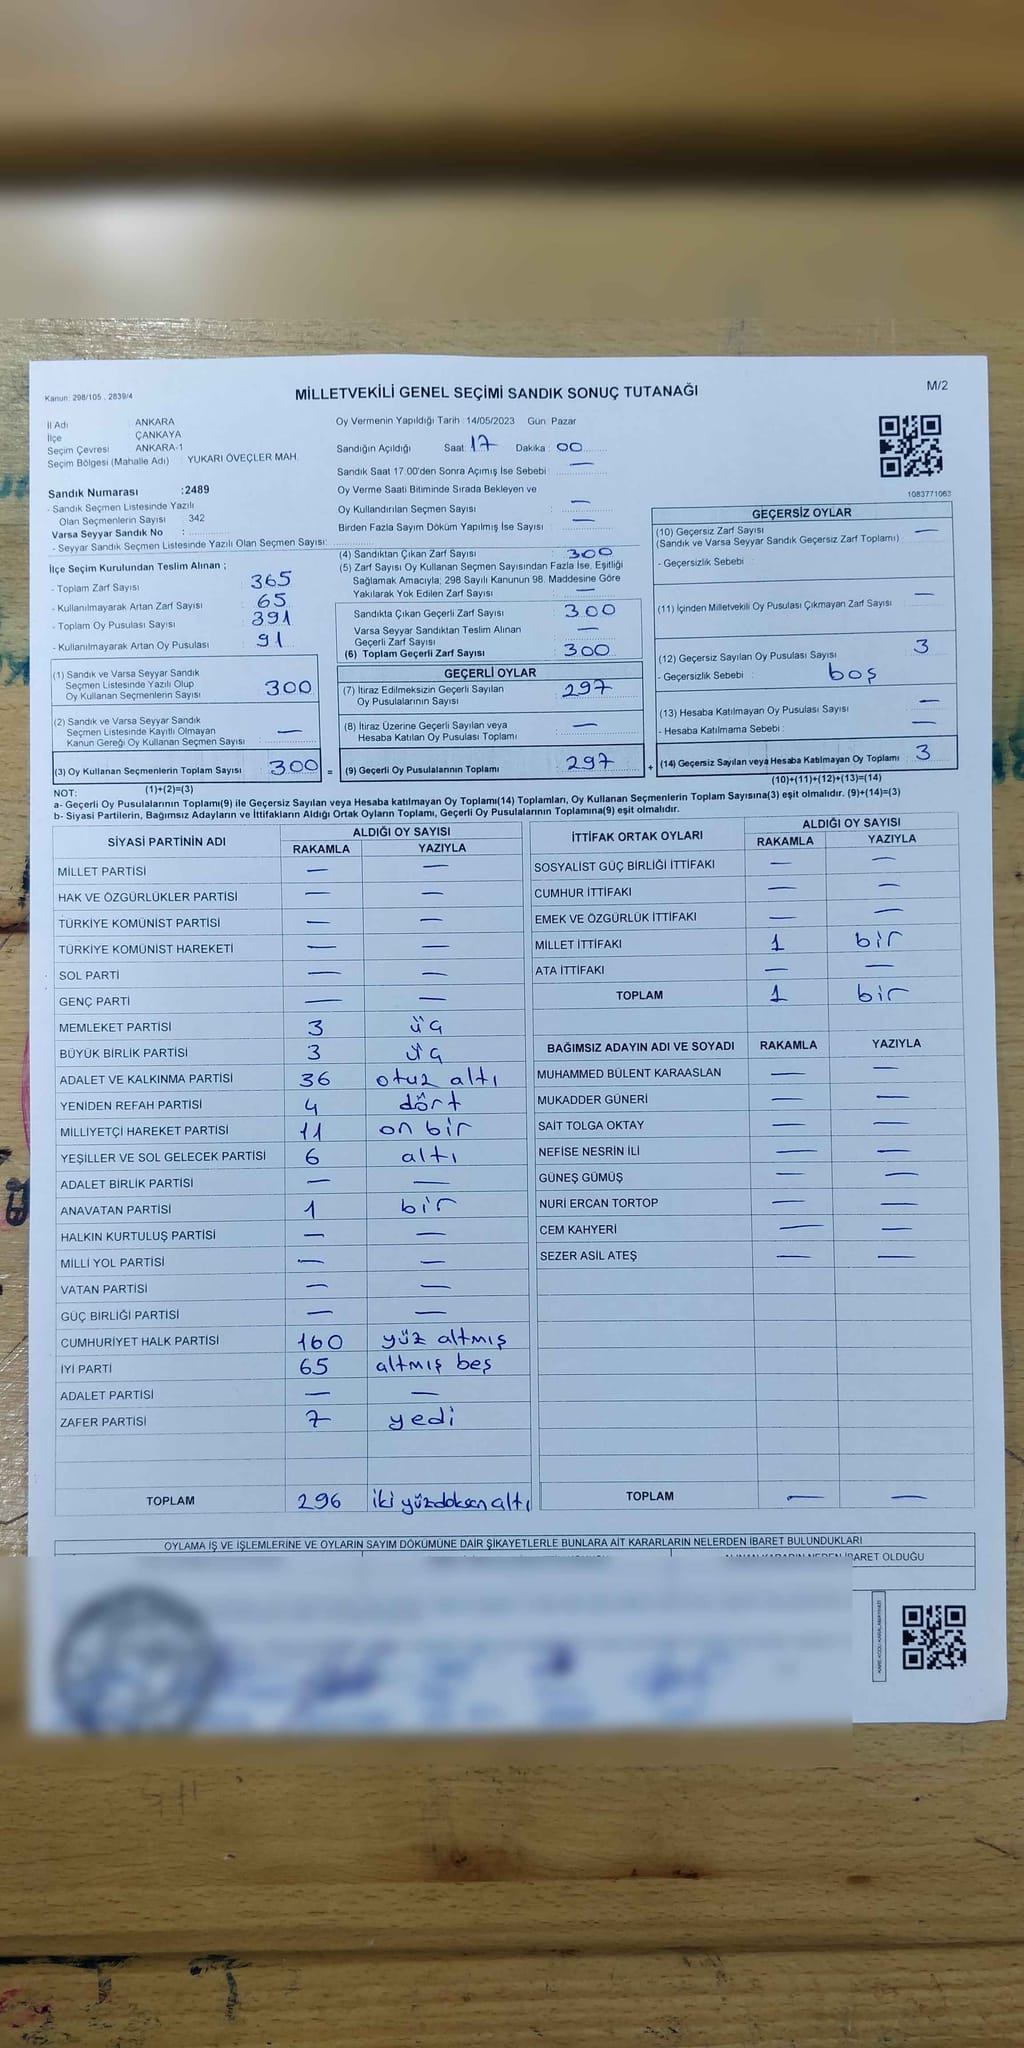 Kanun: 298/105 , 2839/4
MİLLETVEKİLİ GENEL SEÇİMİ SANDIK SONUÇ TUTANAĞI
M/2
İl Adı : ANKARA
İlçe : ÇANKAYA
Seçim Çevresi : ANKARA-1
Seçim Bölgesi (Mahalle Adı) : YUKARI ÖVEÇLER MAH.
Sandık Numarası :2489
- Sandık Seçmen Listesinde Yazılı
Olan Seçmenlerin Sayısı : 342
Varsa Seyyar Sandık No :
- Seyyar Sandık Seçmen Listesinde Yazılı Olan Seçmen Sayısı:
Oy Vermenin Yapıldığı Tarih :14/05/2023 Gün: Pazar
Sandığın Açıldığı Saat: 17 Dakika : 00
Sandık Saat 17:00'den Sonra Açımış İse Sebebi : —
Oy Verme Saati Bitiminde Sırada Bekleyen ve
Oy Kullandırılan Seçmen Sayısı : —
Birden Fazla Sayım Döküm Yapılmış İse Sayısı : —
1083771063
İlçe Seçim Kurulundan Teslim Alınan ;
- Toplam Zarf Sayısı : 365
- Kullanılmayarak Artan Zarf Sayısı : 65
- Toplam Oy Pusulası Sayısı : 391
- Kullanılmayarak Artan Oy Pusulası : 91
(1) Sandık ve Varsa Seyyar Sandık
Seçmen Listesinde Yazılı Olup
Oy Kullanan Seçmenlerin Sayısı 300
(2) Sandık ve Varsa Seyyar Sandık
Seçmen Listesinde Kayıtlı Olmayan
Kanun Gereği Oy Kullanan Seçmen Sayısı —
(3) Oy Kullanan Seçmenlerin Toplam Sayısı 300 =
(1)+(2)=(3)
(4) Sandıktan Çıkan Zarf Sayısı : 300
(5) Zarf Sayısı Oy Kullanan Seçmen Sayısından Fazla İse, Eşitliği
Sağlamak Amacıyla; 298 Sayılı Kanunun 98. Maddesine Göre
Yakılarak Yok Edilen Zarf Sayısı : —
Sandıkta Çıkan Geçerli Zarf Sayısı : 300
Varsa Seyyar Sandıktan Teslim Alınan
Geçerli Zarf Sayısı : —
(6) Toplam Geçerli Zarf Sayısı : 300
GEÇERLİ OYLAR
(7) İtiraz Edilmeksizin Geçerli Sayılan
Oy Pusulalarının Sayısı : 297
(8) İtiraz Üzerine Geçerli Sayılan veya
Hesaba Katılan Oy Pusulası Toplamı —
(9) Geçerli Oy Pusulalarının Toplamı : 297 +
GEÇERSİZ OYLAR
(10) Geçersiz Zarf Sayısı —
(Sandık ve Varsa Seyyar Sandık Geçersiz Zarf Toplamı) :
- Geçersizlik Sebebi :
(11) İçinden Milletvekili Oy Pusulası Çıkmayan Zarf Sayısı : —
(12) Geçersiz Sayılan Oy Pusulası Sayısı : 3
- Geçersizlik Sebebi : boş
(13) Hesaba Katılmayan Oy Pusulası Sayısı : —
- Hesaba Katılmama Sebebi : —
(14) Geçersiz Sayılan veya Hesaba Katılmayan Oy Toplamı 3
(10)+(11)+(12)+(13)=(14)
NOT:
a- Geçerli Oy Pusulalarının Toplamı(9) ile Geçersiz Sayılan veya Hesaba katılmayan Oy Toplamı(14) Toplamları, Oy Kullanan Seçmenlerin Toplam Sayısına(3) eşit olmalıdır. (9)+(14)=(3)
b- Siyasi Partilerin, Bağımsız Adayların ve İttifakların Aldığı Ortak Oyların Toplamı, Geçerli Oy Pusulalarının Toplamına(9) eşit olmalıdır.
SİYASİ PARTİNİN ADI ALDIĞI OY SAYISI
RAKAMLA YAZIYLA
MİLLET PARTİSİ — —
HAK VE ÖZGÜRLÜKLER PARTİSİ — —
TÜRKİYE KOMÜNİST PARTİSİ — —
TÜRKİYE KOMÜNİST HAREKETİ — —
SOL PARTİ — —
GENÇ PARTİ — —
MEMLEKET PARTİSİ 3 üç
BÜYÜK BİRLİK PARTİSİ 3 üç
ADALET VE KALKINMA PARTİSİ 36 otuz altı
YENİDEN REFAH PARTİSİ 4 dört
MİLLİYETÇİ HAREKET PARTİSİ 11 on bir
YEŞİLLER VE SOL GELECEK PARTİSİ 6 altı
ADALET BİRLİK PARTİSİ — —
ANAVATAN PARTİSİ 1 bir
HALKIN KURTULUŞ PARTİSİ — —
MİLLİ YOL PARTİSİ — —
VATAN PARTİSİ — —
GÜÇ BİRLİĞİ PARTİSİ — —
CUMHURİYET HALK PARTİSİ 160 yüz altmış
İYİ PARTİ 65 altmış beş
ADALET PARTİSİ — —
ZAFER PARTİSİ 7 yedi
TOPLAM 296 iki yüzdoksan altı
İTTİFAK ORTAK OYLARI ALDIĞI OY SAYISI
RAKAMLA YAZIYLA
SOSYALİST GÜÇ BİRLİĞİ İTTİFAKI — —
CUMHUR İTTİFAKI — —
EMEK VE ÖZGÜRLÜK İTTİFAKI — —
MİLLET İTTİFAKI 1 bir
ATA İTTİFAKI — —
TOPLAM 1 bir
BAĞIMSIZ ADAYIN ADI VE SOYADI RAKAMLA YAZIYLA
MUHAMMED BÜLENT KARAASLAN — —
MUKADDER GÜNERİ — —
SAİT TOLGA OKTAY — —
NEFİSE NESRİN İLİ — —
GÜNEŞ GÜMÜŞ — —
NURİ ERCAN TORTOP — —
CEM KAHYERİ — —
SEZER ASİL ATEŞ — —
TOPLAM — —
OYLAMA İŞ VE İŞLEMLERİNE VE OYLARIN SAYIM DÖKÜMÜNE DAİR ŞİKAYETLERLE BUNLARA AİT KARARLARIN NELERDEN İBARET BULUNDUKLARI
İBARET OLDUĞU